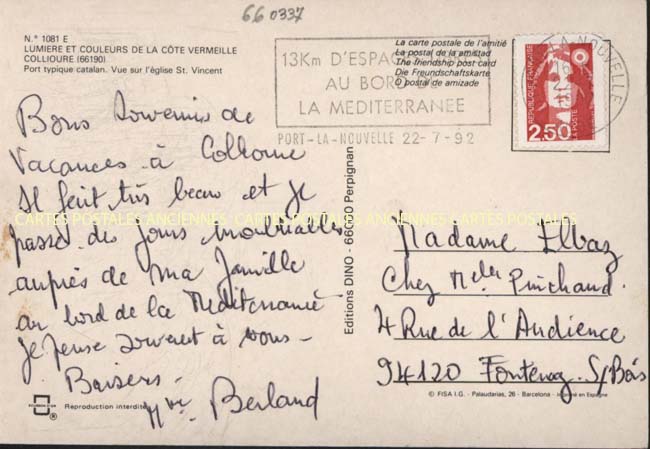 66 0337
N.° 1081 E
LUMIERE ET COULEURS DE LA CÔTE VERMEILLE
COLLIOURE (66190)
Port typique catalan. Vue sur l'église St. Vincent
La carte postale de l'amitié
La postal de la amistad
The friendship post card
Die Freundschaftskarte
O postal de amizade
13Km D'ESPAG
AU BORD DE
LA MEDITERRANEE
PORT-LA-NOUVELLE 22-7-92
LA NOUVELLE
REPUBLIQUE FRANÇAISE
LA POSTE
2,50
Bons Souvenirs de
Vacances à Collioure
Il fait très beau et je
passe des jours inoubliables
auprès de ma famille
au bord de la Méditerranée
Je pense souvent à vous -
Baisers -
Mme Berland
Editions DINO - 66000 Perpignan
Madame Elbaz
Chez Melle Pinchaud
4 Rue de l'Audience
94120 Fontenay. S/Bois
CARTES POSTALES ANCIENNES CARTES POSTALES ANCIENNES CARTES POSTALES
Reproduction interdite
© FISA I.G. - Palaudarias, 26 - Barcelona - en Espagne